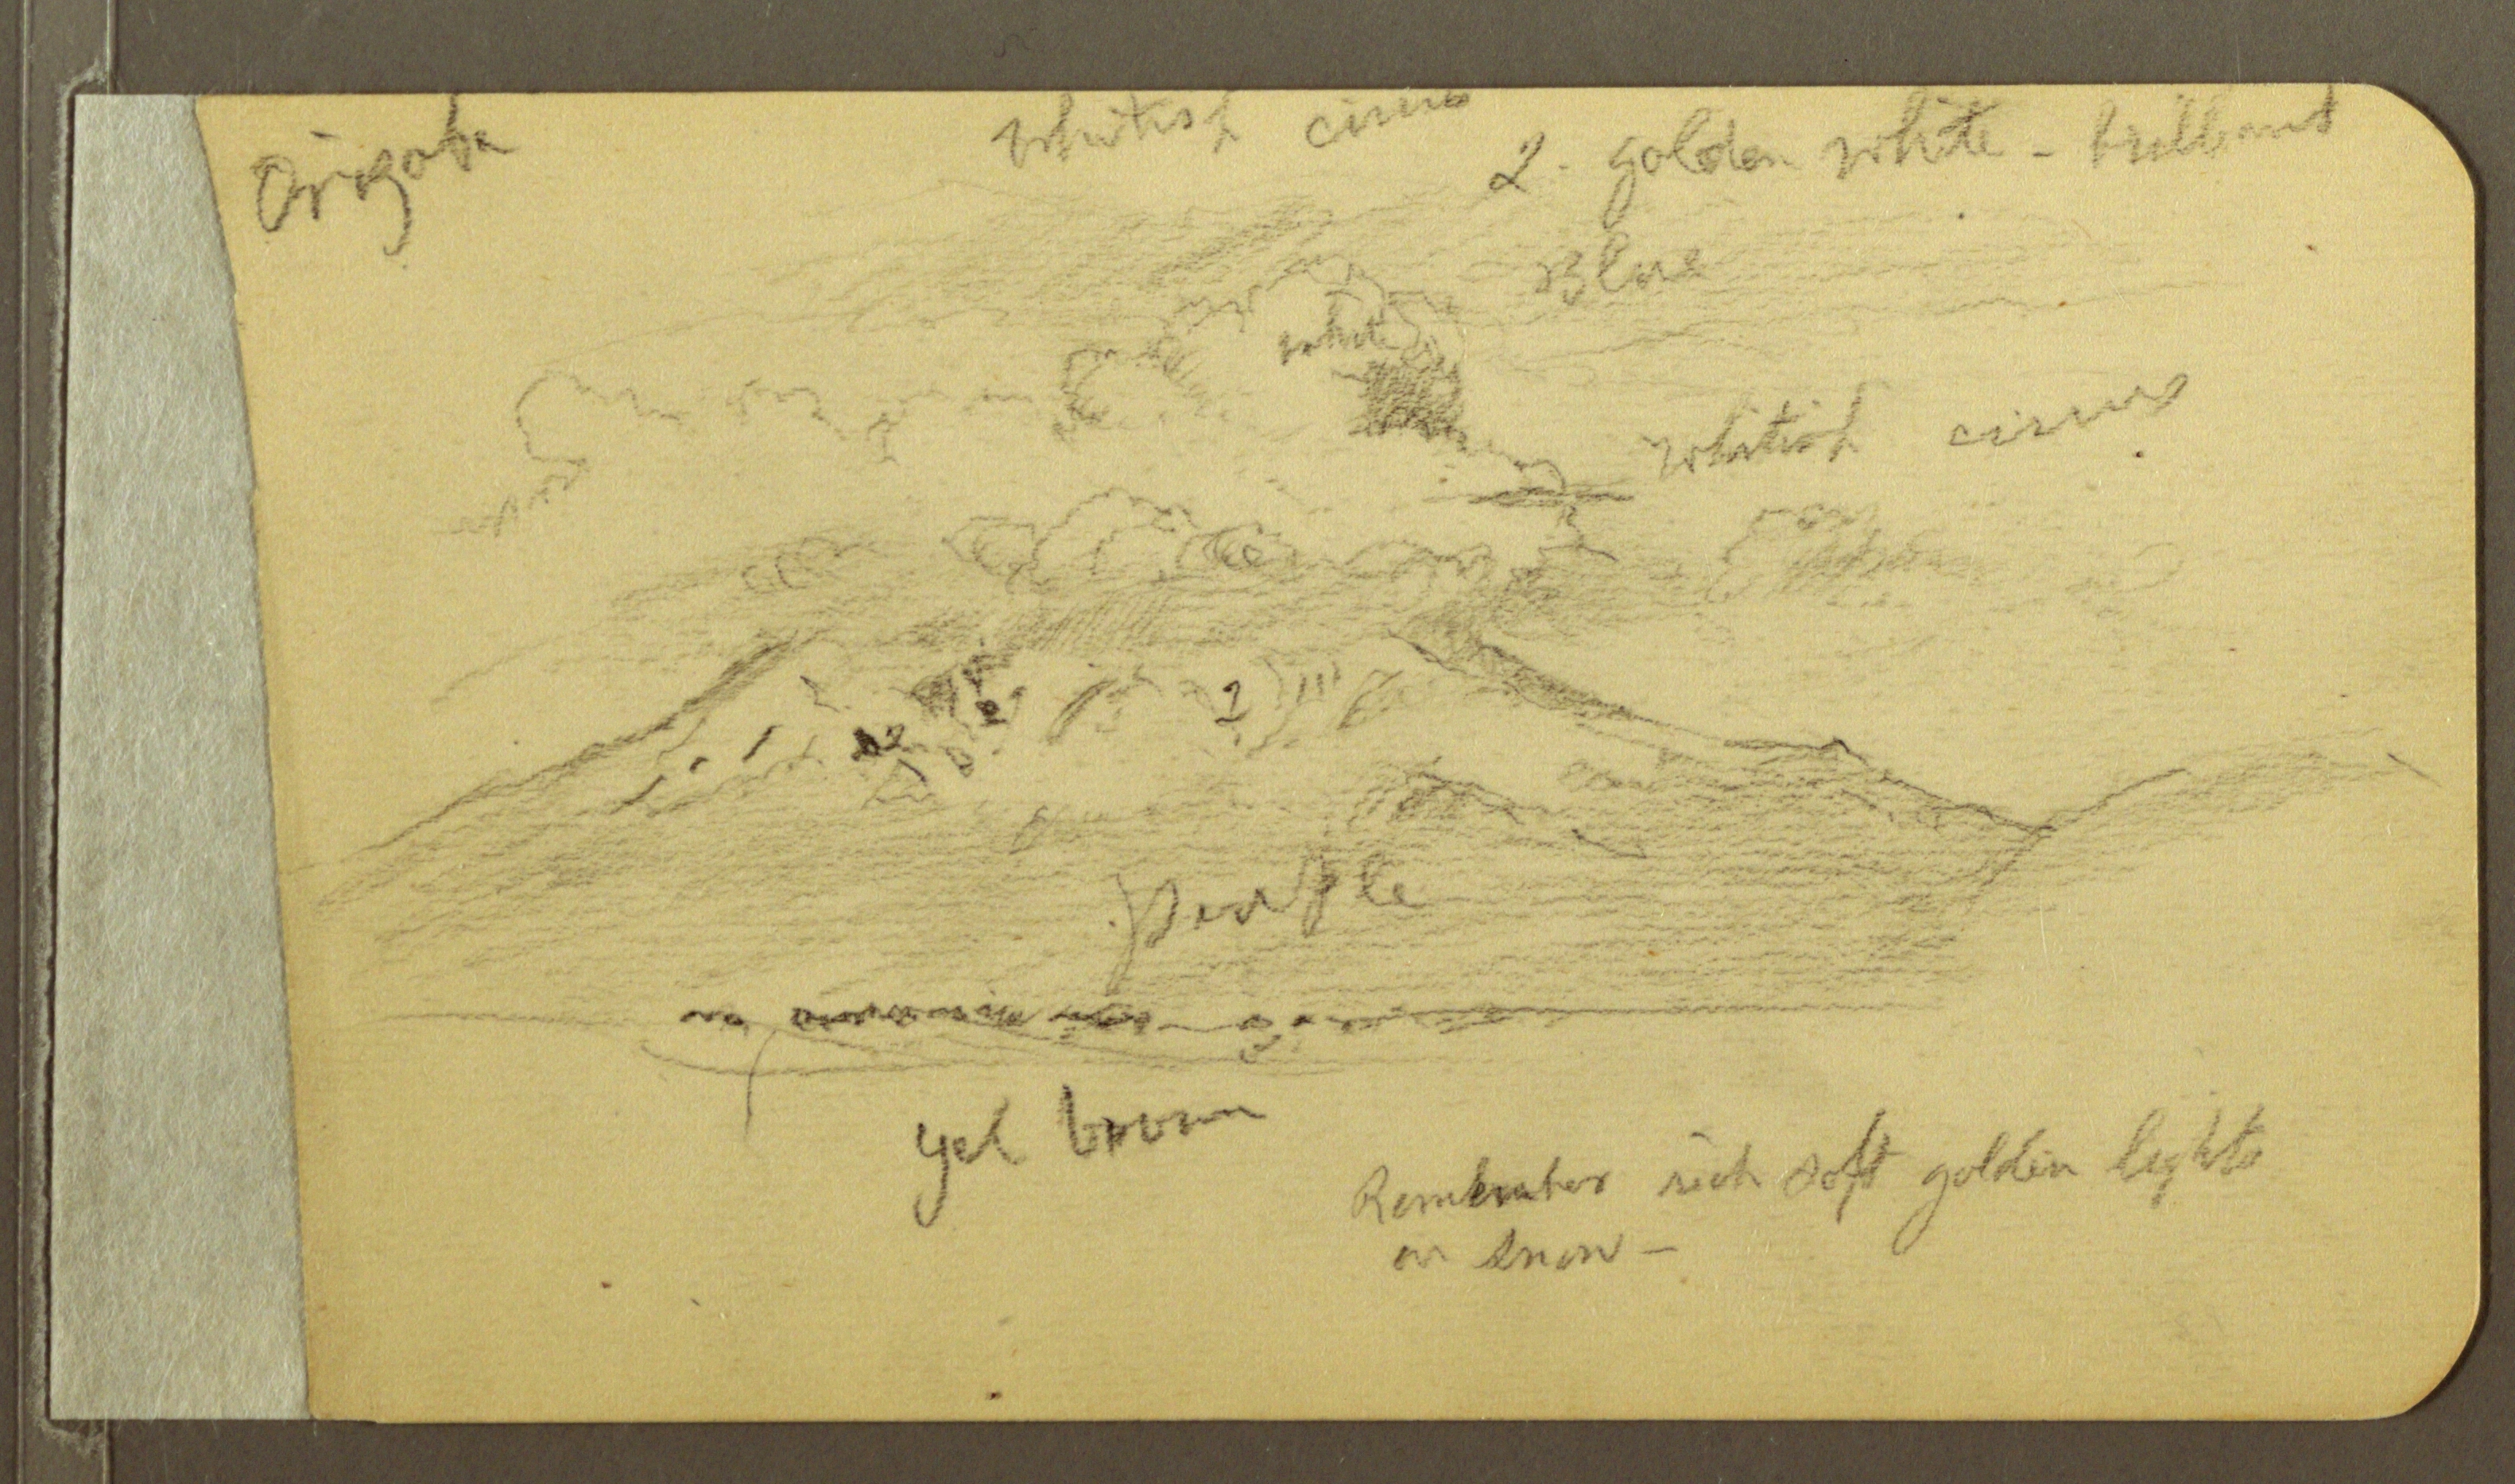 Orizaba
whitish cirrus
2. golden white - brilliant
Blue
white
whitish cirrus
2
2
2
purple
yel brown
Remember rich soft golden lights
on snow -